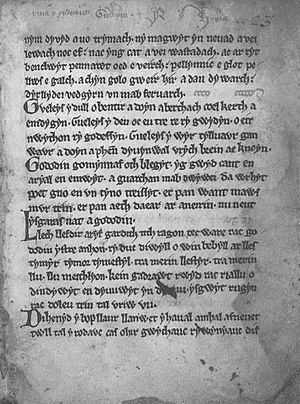 nym dyvyd a uo trymach. ny magwyt yn neuad a vei
lewach noc ef. nac yng cat a vei wastadach. ac ar ryt
benclwyt pennawt oed e veirch. pellynnic e glot pel
lws e galch. a chyn golo gweir hir a dan dywarch;
dyrllydei vedgyrn vn mab feruarch.
Gueleys y dull o bentir a doyn aberthach coel kerth a
emdygyn. Gueleys y deu oc eu tre re ry gwydyn. o eir
nwython ry godessyn. Gueleys y wyr tylluavr gan
wavr a doyn a phen dyuynwal vrych brein ae knoyn.
Gododin gomynnaf oth blegyt. yg gwyd cant en
aryal en emwyt. a guarchan mab dwywei da wrhyt
poet gno en vn tyno treissyt. er pan want maws
mvr trin. er pan aeth daear ar aneirin. nu neut
ysgaras nat a gododin.
Llech lefdir aryf gardith tith ragon tec ware rac go
dodin ystre anhon. ry duc diwyll o win bebyll ar llef
tymyr tymor tymestyl. tra merin llestyr. tra merin
llu. llu meithlyon. kein gadrawt rwyd rac riallu o
dindywyt en dyuuwyt yn ysgwyt rugyn
rac doleu trin tal vriw vu.
Dihenyd y bop llaur llanwet e hual amhal afneuet
twll tal y rodavc cas ohir gwychauc rywynyauc dif